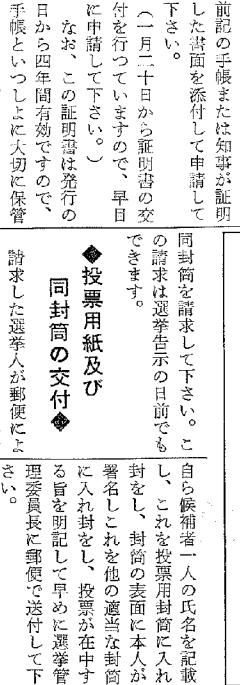 前記の手帳または知事が証明
した書面を添付して申請して
下さい。
（一月二十日から証明書の交
付を行つていますので、早目
に申請して下さい。）
なお、この証明書は発行の
日から四年間有効ですので、
手帳といつしよに大切に保管
同封筒を請求して下さい。こ
の請求は選挙告示の日前でも
できます。
◆投票用紙及び
同封筒の交付◆
請求した選挙人が郵便によ
自ら候補者一人の氏名を記載
し、これを投票用封筒に入れ
封をし、封筒の表面に本人が
署名しこれを他の適当な封筒
に入れ封をし、投票が在中す
る旨を明記して早めに選挙管
理委員長に郵便で送付して下
さい。